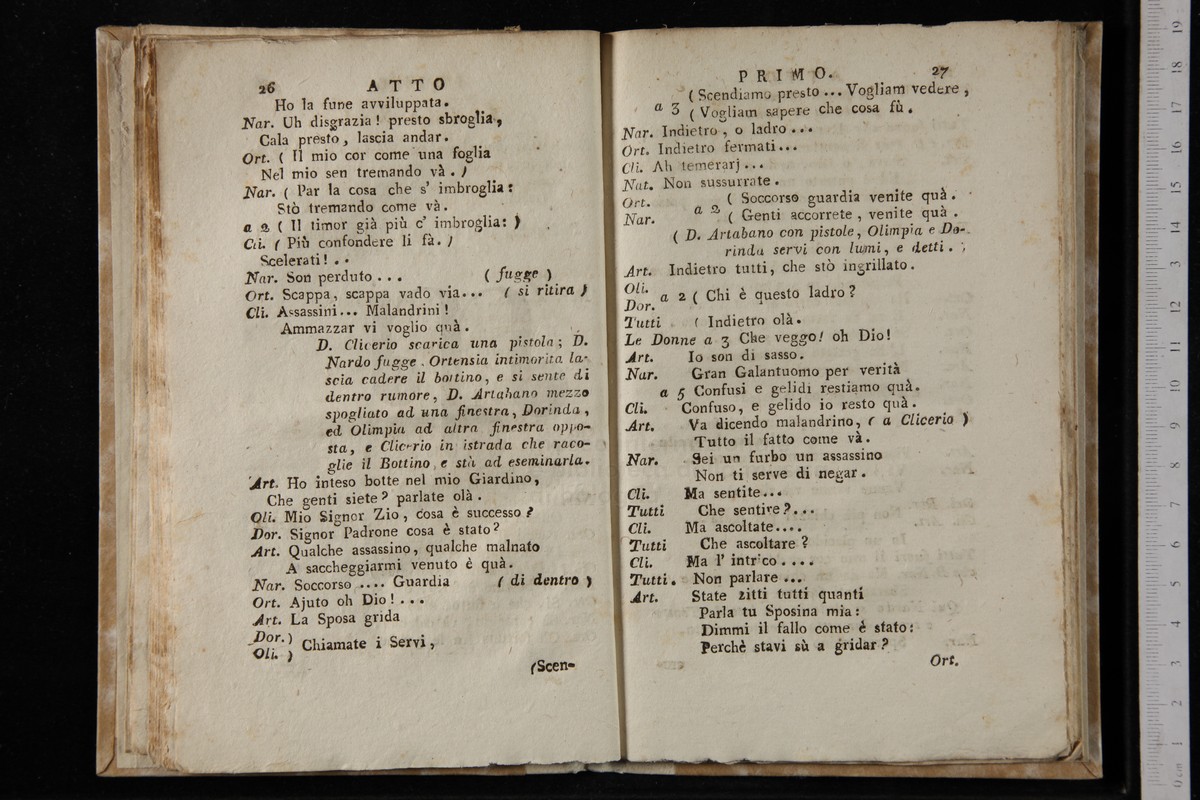 26 ATTO
Ho la fune avviluppata.
Nar. Uh disgrazia! presto sbroglia,
Cala presto, lascia andar.
Ort. ( Il mio cor come una foglia
Nel mio sen tremando và. )
Nar. ( Par la cosa che s' imbroglia:
Stò tremando come và.
a 2 ( Il timor già più c' imbroglia: )
Cli. ( Più confondere li fà. )
Scelerati! . .
Nar. Son perduto . . . ( fugge )
Ort. Scappa, scappa vado via... ( si ritira )
Cli. Assassini... Malandrini!
Ammazzar vi voglio quà.
D. Clicerio scarica una pistola; D.
Nardo fugge. Ortensia intimorita la-
scia cadere il bottino, e si sente di
dentro rumore, D. Artabano mezzo
spogliato ad una finestra, Dorinda,
ed Olimpia ad altra finestra oppo-
sta, e Clicerio in istrada che raco-
glie il Bottino e stà ad eseminarla.
Art. Ho inteso botte nel mio Giardino,
Che genti siete? parlate olà.
Oli. Mio Signor Zio, cosa è successo?
Dor. Signor Padrone cosa è stato?
Art. Qualche assassino, qualche malnato
A saccheggiarmi venuto è quà.
Nar. Soccorso .... Guardia ( di dentro )
Ort. Ajuto oh Dio! . . .
Art. La Sposa grida
Dor. )
Oli. ) Chiamate i Servi,
(Scen-
PRIMO. 27
( Scendiamo presto ... Vogliam vedere,
a 3 ( Vogliam sapere che cosa fù.
Nar. Indietro, o ladro ...
Ort. Indietro fermati...
Cli. Ah temerarj ...
Nat. Non sussurrate.
Ort. ( Soccorso guardia venite quà.
Nar. a 2 ( Genti accorrete, venite quà.
( D. Artabano con pistole, Olimpia e Do-
rinda servi con lumi, e detti.
Art. Indietro tutti, che stò ingrillato.
Oli.
Dor. a 2 ( Chi è questo ladro?
Tutti ( Indietro olà.
Le Donne a 3 Che veggo! oh Dio!
Art. Io son di sasso.
Nar. Gran Galantuomo per verità
a 5 Confusi e gelidi restiamo quà.
Cli. Confuso, e gelido io resto quà.
Art. Va dicendo malandrino, ( a Clicerio )
Tutto il fatto come và.
Nar. Sei un furbo un assassino
Non ti serve di negar.
Cli. Ma sentite...
Tutti Che sentire?...
Cli. Ma ascoltate....
Tutti Che ascoltare?
Cli. Ma l' intrico ....
Tutti. Non parlare ...
Art. State zitti tutti quanti
Parla tu Sposina mia:
Dimmi il fallo come è stato:
Perchè stavi sù a gridar?
Ort.
0 cm 1 2 3 4 5 6 7 8 9 10 11 12 13 14 15 16 17 18 19